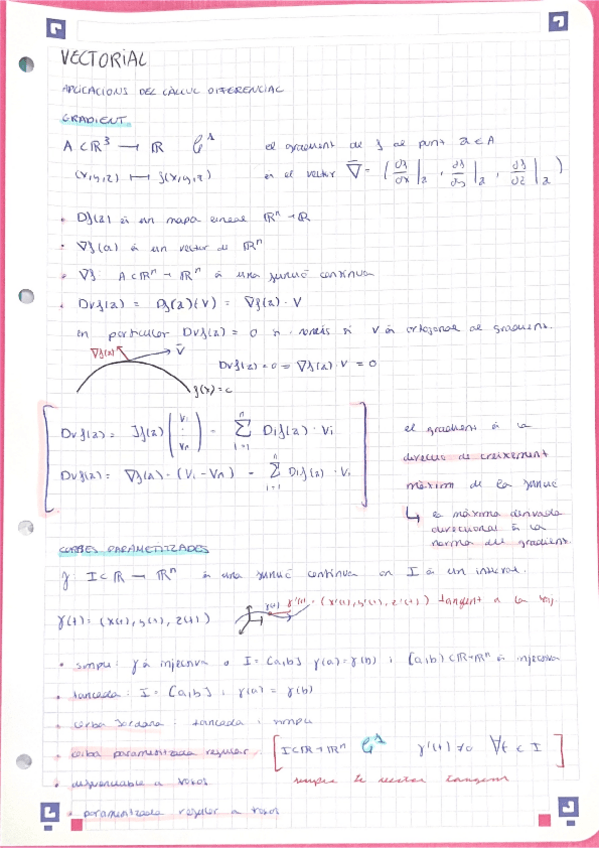 VECTORIAL
APLICACIONS DEL CÀLCUL DIFERENCIAL
GRADIENT
A ⊂ ℝ³ → ℝ   𝒞¹   el gradient de f al punt a ∈ A
(x,y,z) ↦ f(x,y,z)   és el vector ∇̄ = (∂f/∂x|a , ∂f/∂y|a , ∂f/∂z|a)
• Df(a) és un mapa lineal ℝⁿ → ℝ
• ∇f(a) és un vector de ℝⁿ
• ∇f: A ⊂ ℝⁿ → ℝⁿ és una funció contínua
• Dvf(a) = Df(a)(v) = ∇f(a) · v
en particular Dvf(a) = 0 si només si v és ortogonal al gradient.
∇f(a)   v̄
Dvf(a) = 0 = ∇f(a) · v = 0
f(x) = c
Dvf(a) = Jf(a) (v₁ ⋮ vn) = Σ i=1 n Dif(a) · vi
Dvf(a) = ∇f(a) · (v₁ - vn) = Σ i=1 n Dif(a) · vi
el gradient és la
direcció de creixement
màxim de la funció
↳ la màxima derivada
direccional és la
norma del gradient.
CORBES PARAMETITZADES
γ: I ⊂ ℝ → ℝⁿ és una funció contínua on I és un interval.
γ(t) = (x(t), y(t), z(t))   γ(t)   γ'(t) = (x'(t), y'(t), z'(t)) tangent a la
• simple: γ és injectiva o I = [a,b] γ(a) = γ(b) i [a,b) ⊂ ℝ → ℝⁿ és injectiva
• tancada: I = [a,b] i γ(a) = γ(b)
• corba Jordana: tancada i simple
• corba parametitzada regular. [I ⊂ ℝ → ℝⁿ 𝒞¹   γ'(t) ≠ 0 ∀t ∈ I]
• a trossos   sempre té vector tangent
• parametitzada regular a trossos